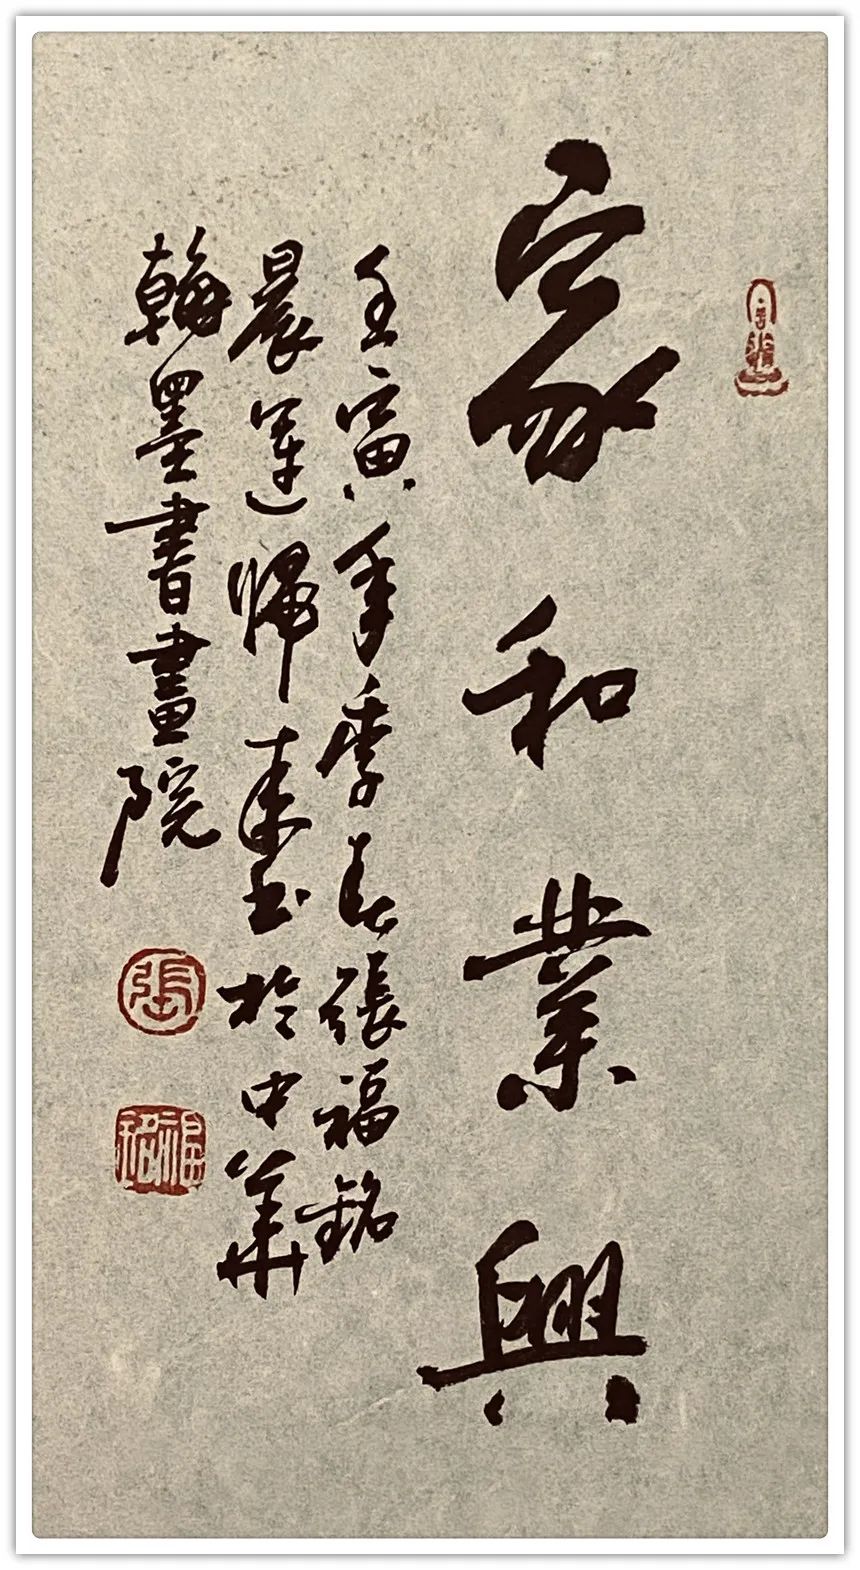 家和業興
壬寅年季春張福銘
晨運歸来書於中華
翰墨書畫院
張
福銘